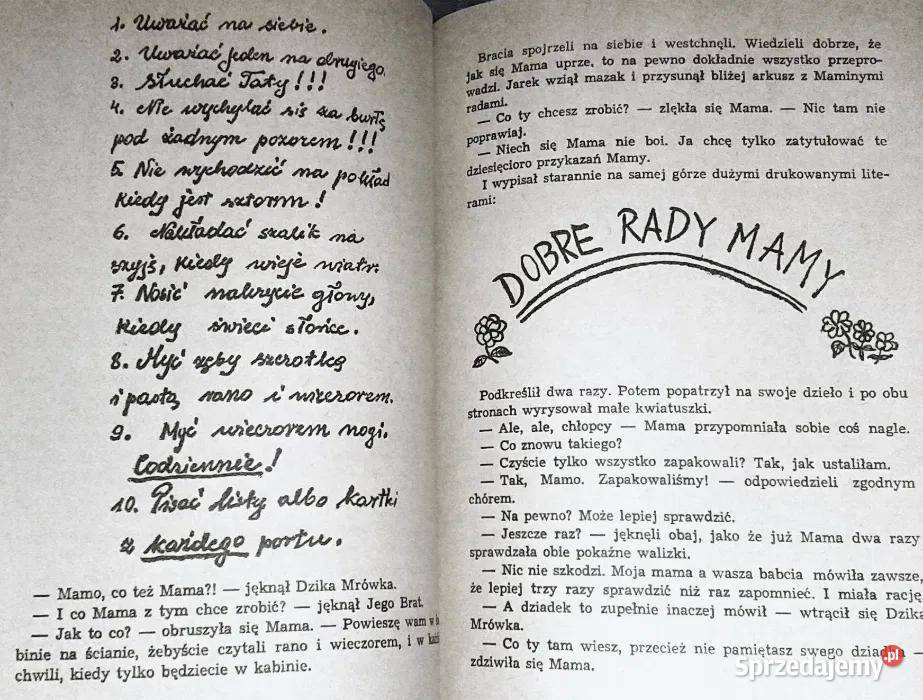 1. Uważać na siebie.
2. Uważać jeden na drugiego.
3. Słuchać Taty!!!
4. Nie wychylać się za burtę
pod żadnym pozorem!!!
5. Nie wychodzić na pokład
kiedy jest sztorm!
6. Nakładać szalik na
szyję, kiedy wieje wiatr.
7. Nosić nakrycie głowy,
kiedy świeci słońce.
8. Myć zęby szczotką
i pastą rano i wieczorem.
9. Myć wieczorem nogi.
Codziennie!
10. Pisać listy albo kartki
z każdego portu.
— Mamo, co też Mama?! — jęknął Dzika Mrówka.
— I co Mama z tym chce zrobić? — jęknął Jego Brat.
— Jak to co? — obruszyła się Mama. — Powieszę wam w ka-
binie na ścianie, żebyście czytali rano i wieczorem, i w każdej
chwili, kiedy tylko będziecie w kabinie.
Bracia spojrzeli na siebie i westchnęli. Wiedzieli dobrze, że
jak się Mama uprze, to na pewno dokładnie wszystko przepro-
wadzi. Jarek wziął mazak i przysunął bliżej arkusz z Maminymi
radami.
— Co ty chcesz zrobić? — zlękła się Mama. — Nic tam nie
poprawiaj.
— Niech się Mama nie boi. Ja chcę tylko zatytułować te
dziesięcioro przykazań Mamy.
I wypisał starannie na samej górze dużymi drukowanymi lite-
rami:
DOBRE RADY MAMY
Podkreślił dwa razy. Potem popatrzył na swoje dzieło i po obu
stronach wyrysował małe kwiatuszki.
— Ale, ale, chłopcy — Mama przypomniała sobie coś nagle.
— Co znowu takiego?
— Czyście tylko wszystko zapakowali? Tak, jak ustaliłam.
— Tak, Mamo. Zapakowaliśmy! — odpowiedzieli zgodnym
chórem.
— Na pewno? Może lepiej sprawdzić.
— Jeszcze raz? — jęknęli obaj, jako że już Mama dwa razy
sprawdzała obie pokaźne walizki.
— Nic nie szkodzi. Moja mama a wasza babcia mówiła zawsze,
że lepiej trzy razy sprawdzić niż raz zapomnieć. I miała rację.
— A dziadek to zupełnie inaczej mówił — wtrącił się Dzika
Mrówka.
— Co ty tam wiesz, przecież nie pamiętasz swego dziadka —
zdziwiła się Mama.
Sprzedajemy.pl